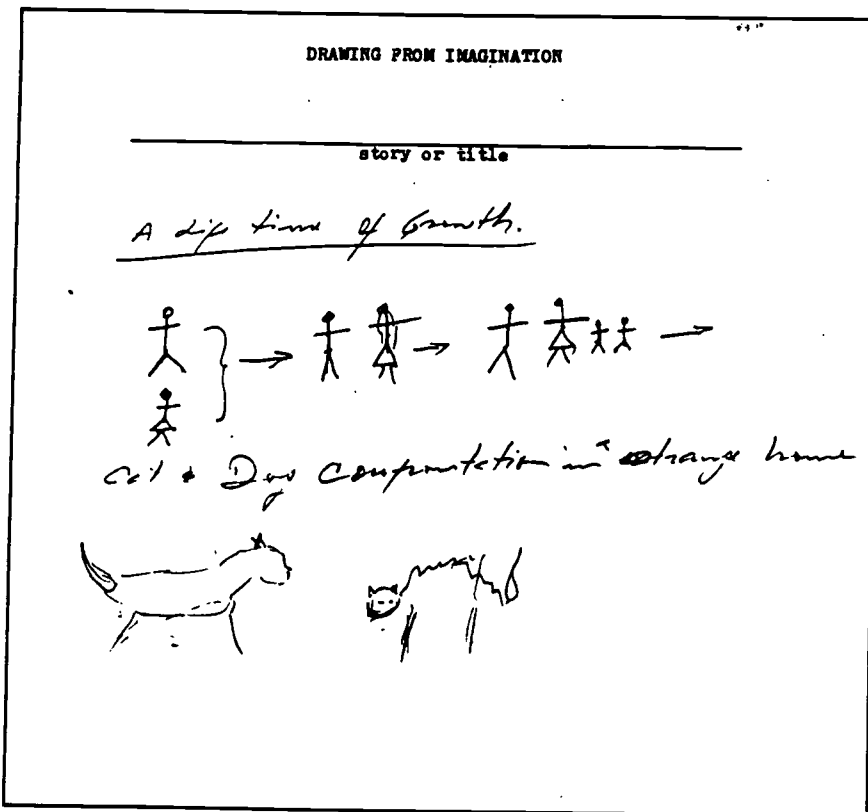 DRAWING FROM IMAGINATION
story or title
A life time of Growth.
Cat & Dog Confrontation in a strange home